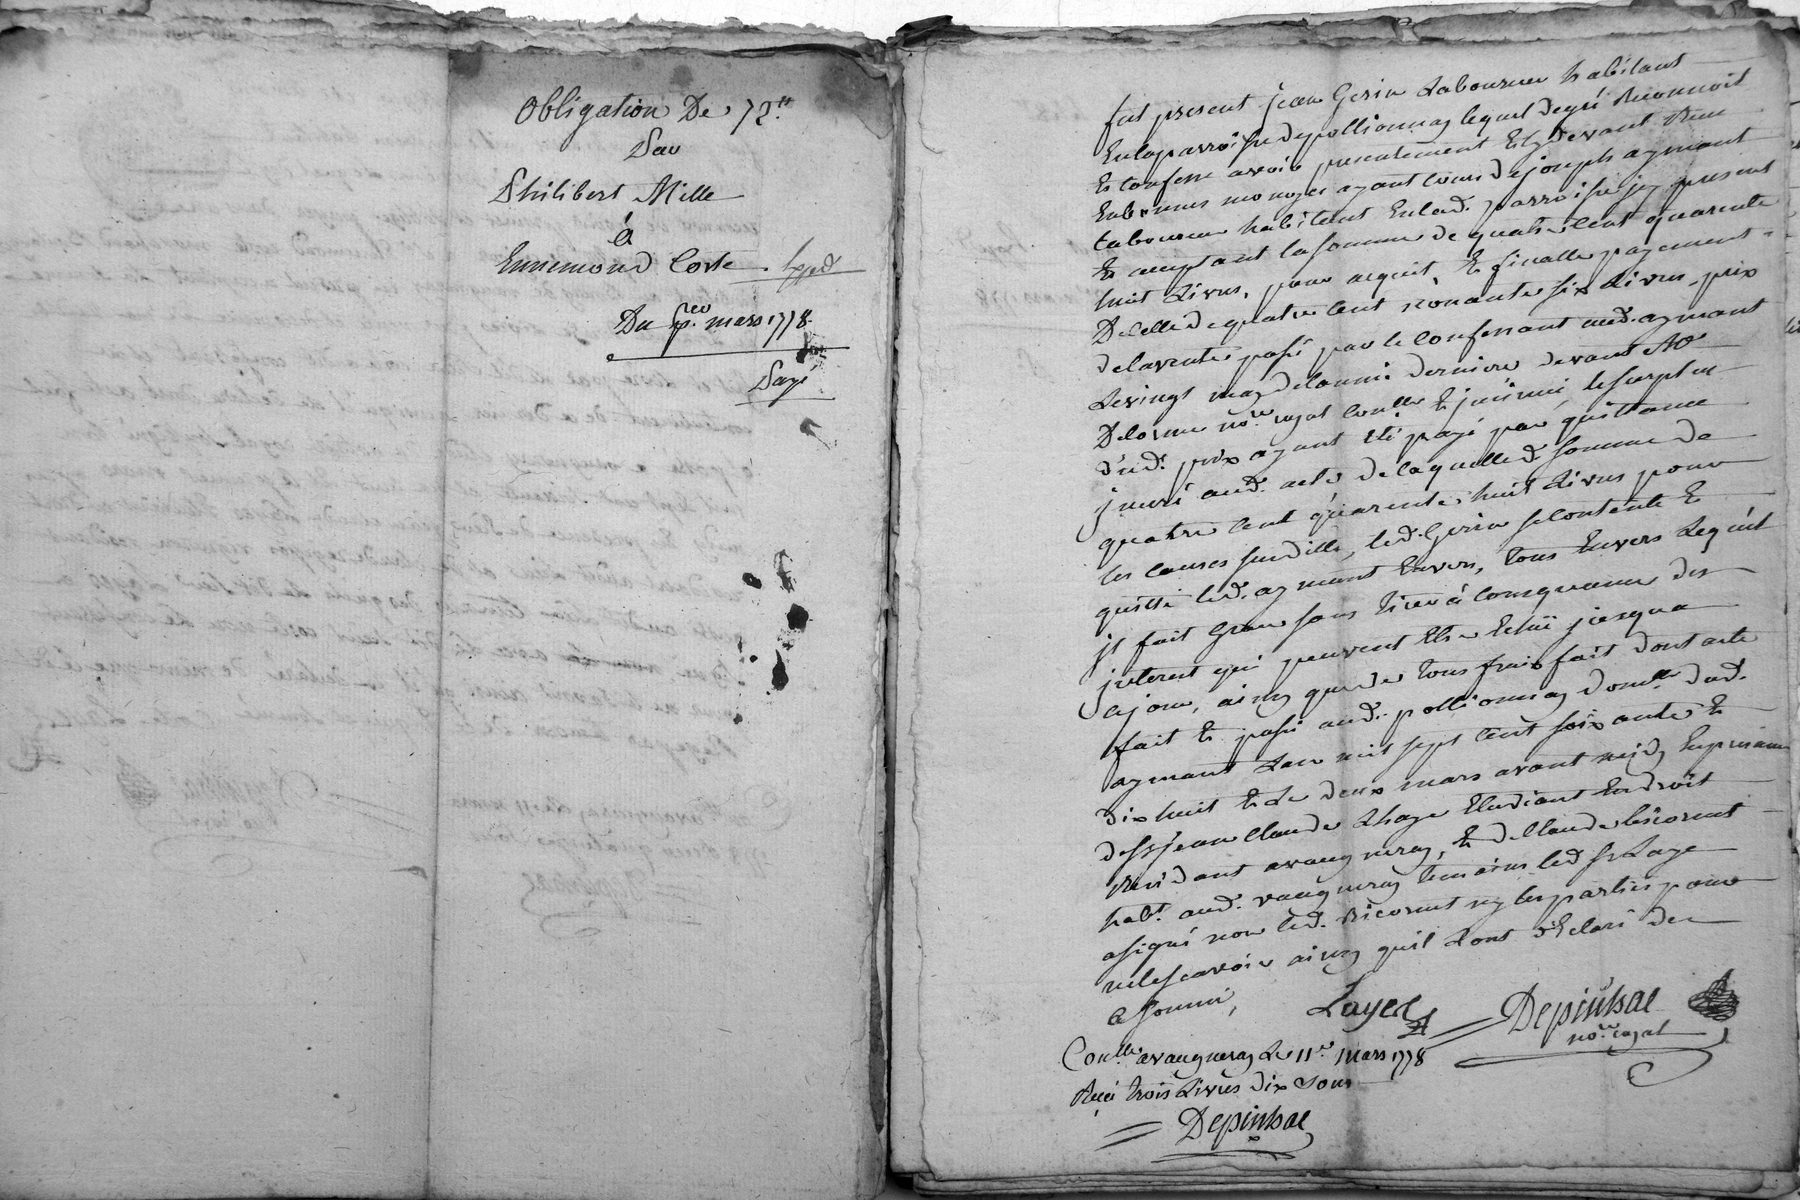 Obligation De 72.tt
Par
Philibert Mille
à
Ennemond Coste. Exped
Du pr. mars 1778.
Payé
fut present jean Gerin Laboureur habitant
En la parroisse de pollionnay lequel de gré Reconnoit
Et confesse avoir presentement Et cy devant Reçu
En bonnes monoyes ayant cours de joseph aymant
Laboureur habitant En lad. parroisse jcy present
Et acceptant la somme de quatre Cent quarente
huit Livres, pour acquit, Et finalle payement
De Celle de quatre Cent Livres prix
de la vente passé par le Confessant aud. aymant
Le vingt may de l'année derniere devant Me
Delorme nore. royal Conllé Et jnsinué, le surplus
dud. prix ayant Eté payé par quittance
jnseré aud. acte de laquelle d. somme de
quatre Cent quarente huit Livres pour
les Causes susditte, led. Gerin se Contente Et
quitte led. aymant Envers, tous Envers Lequel
jl fait Grace sans tirer à Consequence des
jnterest qui peuvent Etre Echus jusqua
ce jour, ainsy que de tous frais fait dont acte
fait Et passé aud. pollionnay domlle dud.
aymant Lan mil sept Cent soixante Et
dix huit Et le deux mars avant midy En presence
de sr jean Claude Lhaye Etudiant En droit
Residant a vaugneray, Et de Claude Bicornet
habt. aud. vaugneray temoins led. sr Laye
a signé non led. Bicornet ny les parties pour
ne le scavoir ainsy quil Lont declaré de
ce sommé,
Layer Depinhac
nore. royal
Conllé a vaugneray Le 11e. mars 1778
Reçu trois Livres dix sous
Depinhac